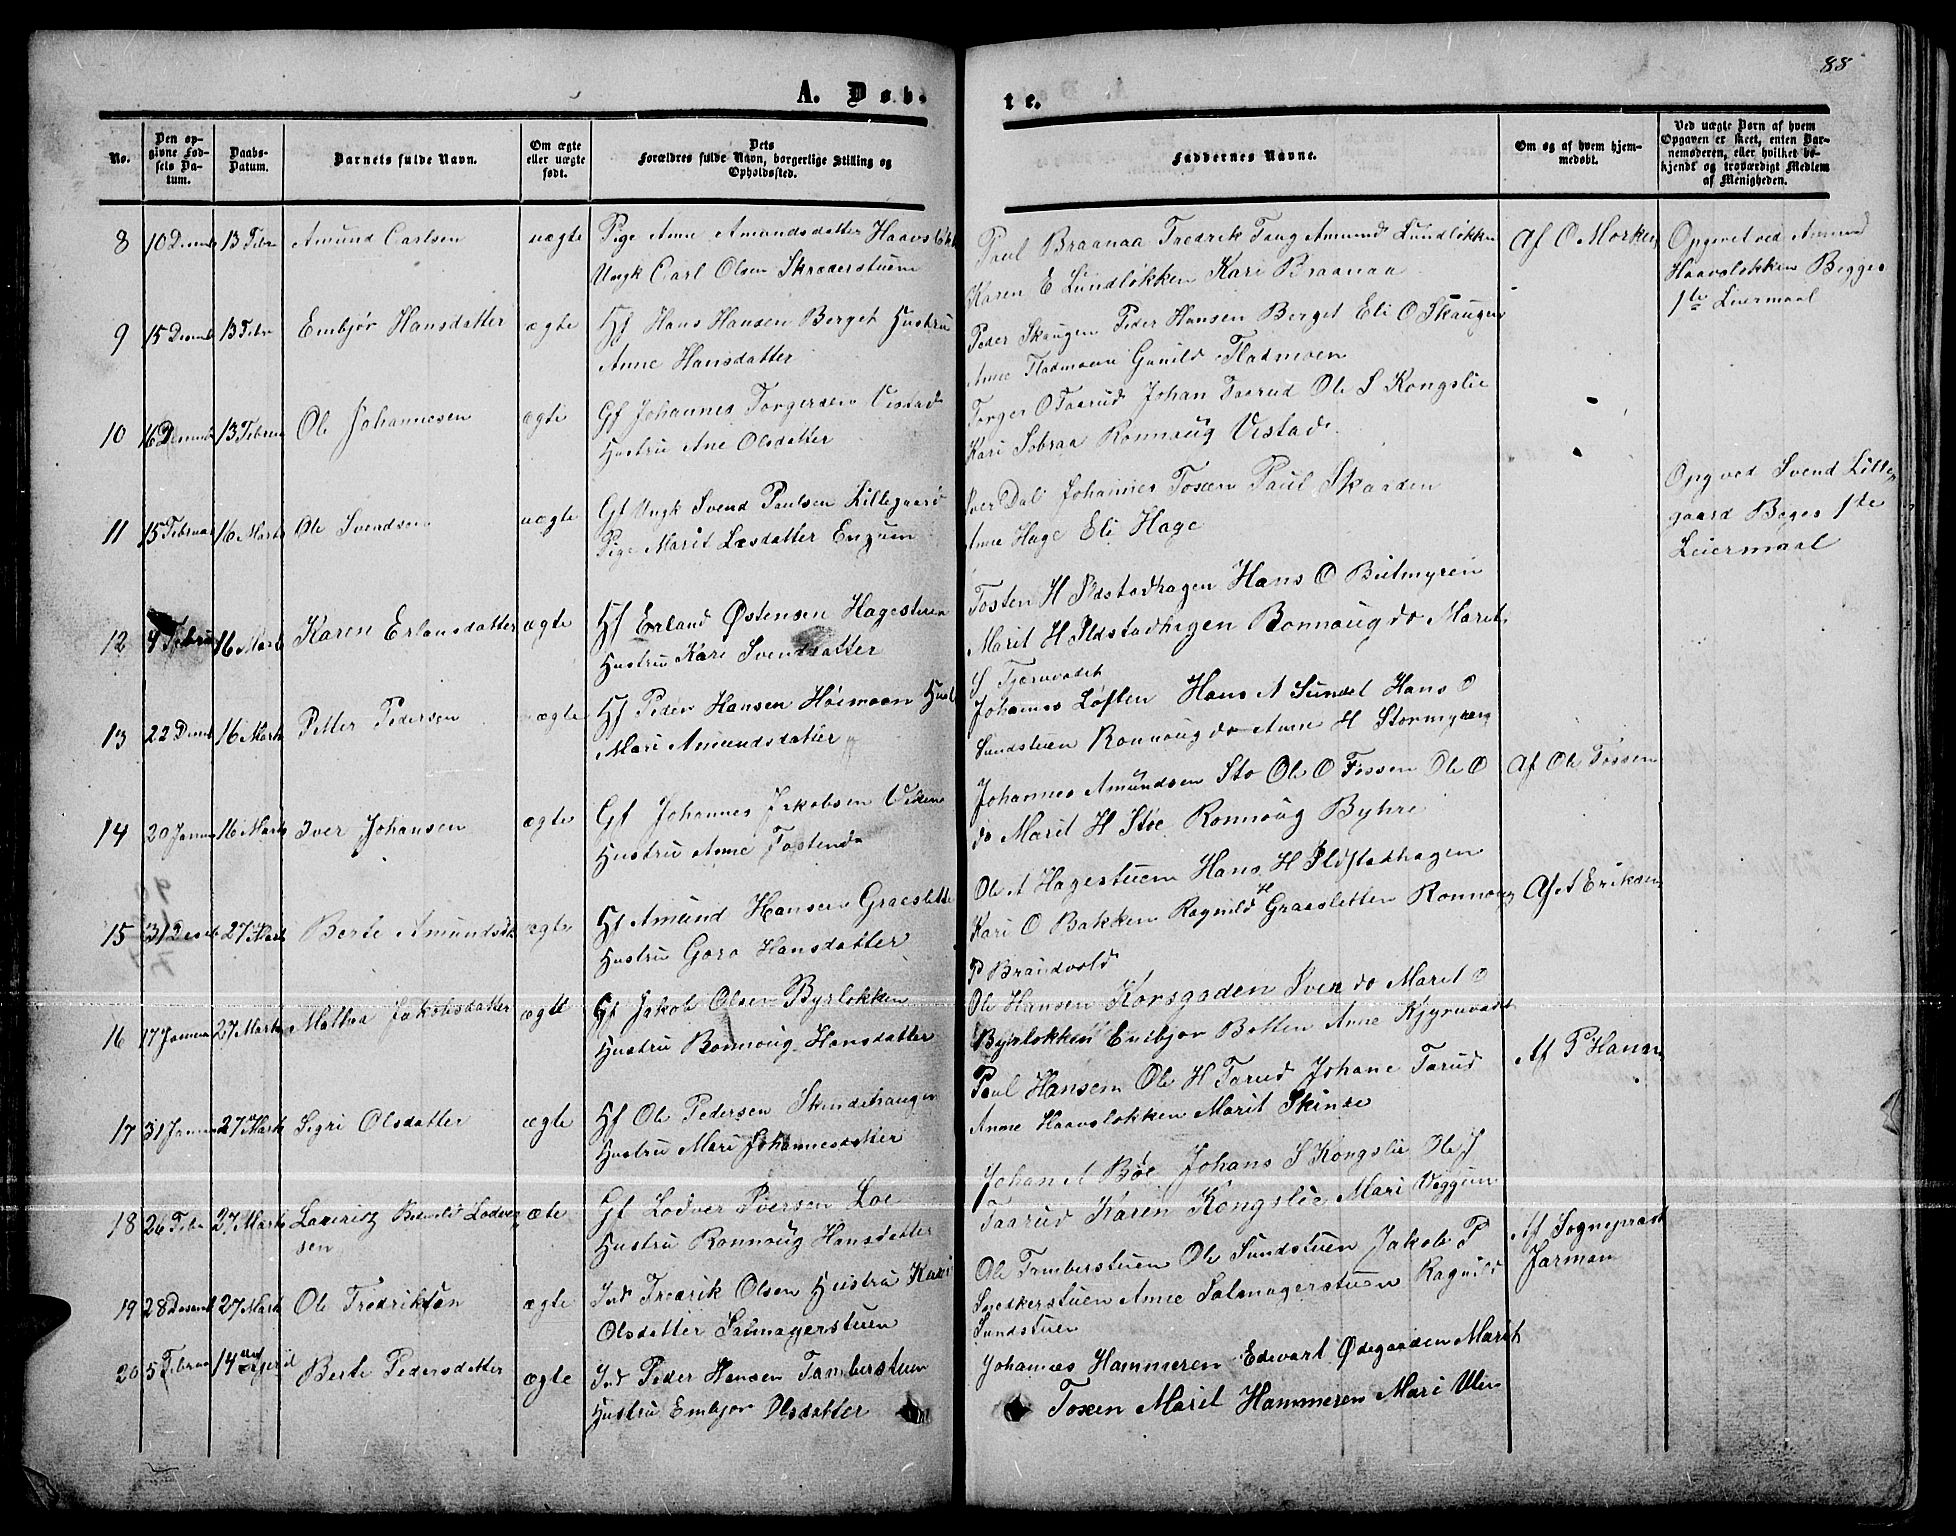 88
A. Døb-
te.
No.
Den op-
givne Fød-
sels Da-
tum.
Daabs-
Datum.
Barnets fulde Navn.
Om ægte
eller uægte
født.
Dets
Forældres fulde Navn, borgerlige Stilling og
Opholdssted.
Faddernes Navne.
Om og af hvem hjem-
medøbt.
Ved uægte Børn af hvem
Opgaven er skeet, enten Bar-
nemoderen, eller hvilket be-
kjendt og troværdigt Medlem
af Menigheden.
8 10 Decemb 13 Febr Amund Carlsen uægte Pige Anne Amundsdatter Haavsløkk
Ungk Carl Olsen Skræderstuen
Paul Braanaa Fredrik Taug Amund Lundløkken
Karen E Lundløkken Kari Braanaa
Af O Morken
Opgivet ved Amund
Haavsløkken Begges
1te Leiermaal
9 15 Decemb 13 Febr Embjør Hansdatter ægte Hf Hans Hansen Berget Hustru
Anne Hansdatter
Peder Skaugen Peder Hansen Berget Eli O Skaugen
Anne Fladmoen Gunild Fladmoen
10 16 Decemb 13 Februar Ole Johannesen ægte Gf Johannes Torgersen Vistad
Hustru Ane Olsdatter
Torger O Taarud Johan Taarud Ole S Kongslie
Kari Sobraa Ronnaug Vistad
11 15 Februar 16 Marts Ole Svendsen uægte Gf Ungk Svend Paulsen Lillegaard
Pige Marit Læsdatter Enzuen
Iver Dal Johannes Toxen Paul Skaaden
Anne Hage Eli Hage
Opg ved Svend Lille
gaard Beges 1te
Leiermaal
12 4 Februar 16 Marts Karen Erlandsdatter ægte Hf Erland Østensen Hagestuen
Hustru Kari Svendsdatter
Tosten H Ildstadhagen Hans O Butmyren
Marit H Ildstadhagen Ronnoug do Marit
S Tjernvadet
13 22 Decmb 16 Marts Petter Pedersen ægte Hf Peder Hansen Høimoen Hust
Mari Amundsdatter
Johannes Løften Hans A Sundet Hans O
Sundstuen Ronnoug do Anne H Stormyren
14 20 Januar 16 Marts Iver Johansen ægte Gf Johannes Jakobsen Viken
Hustru Anne Tostensd
Johannes Amundsen Sto Ole O Fossen Ole O
do Marit H Støe Ronnoug Byhre
Af Ole Fossen
15 31 Deseb 27 Marts Berte Amundsdt ægte Hf Amund Hansen Graesletten
Hustru Goro Hansdatter
Ole A Hagestuen Hans H Ildstadhagen
Kari O Bakken Ragnild H Graasletten Ronnoug
P Brandvold
Af A Eriksen
16 17 Januar 27 Marts Mathea Jakobsdatter ægte Gf Jakob Olsen Byrløkken
Hustru Ronnoug Hansdatter
Ole Hansen Korsgaden Iver do Marit O
Byrløkken Embjør Botten Anne Kjyruvadet
17 31 Januar 27 Marts Sigri Olsdatter ægte Hf Ole Pedersen Skindehaugen
Hustru Mari Johannesdatter
Paul Hansen Ole H Tarud Johane Tarud
Anne Haavsløkken Marit Skinde
Af P Hansen
18 26 Febr 27 Marts Lauritz Lodver
sen æte Gf Lodver Iversen Loe
Hustru Ronnoug Hansdatter
Johan A Bøe Johans S Kongslie Ole J
Taarud Karen Kongslie Mari Veggum
19 28 Desemb 27 Marts Ole Fredriksen ægte Ind Fredrik Olsen Hustru Kari
Olsdatter Salmagerstuen
Ole Tamberstuen Ole Sundstuen Jakob P
Snedkerstuen Anne Salmagerstuen Ragnild
Sundstuen
Af Sogneprest
Jarman
20 5 Februar 14 April Berte Pedersdatter ægte Ind Peder Hansen Tamberstuen
Hustru Embjør Olsdatter
Johannes Hammeren Edevart Ødegaarden Marit
Toxen Marit Hammeren Mari Ulen